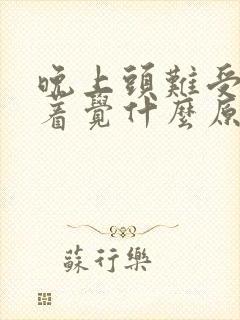 晚上頭難受
着覺什麼原
蘇行樂